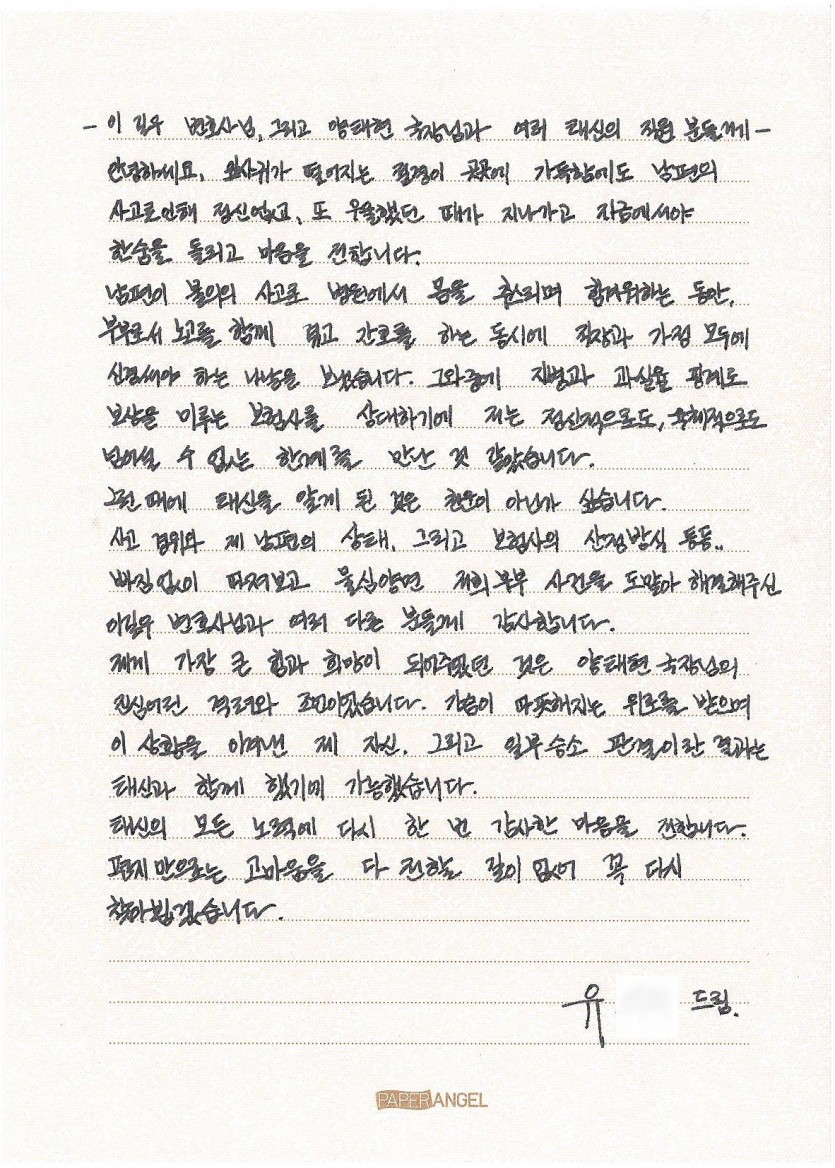 - 이길우 변호사님, 그리고 양태현 국장님과 여러 태신의 직원 분들께 -
안녕하세요. 잎사귀가 떨어지는 절경이 곳곳에 가득함에도 남편의
사고로 인해 정신없고, 또 우울했던 때가 지나가고 지금에서야
한숨을 돌리고 마음을 전합니다.
남편이 불의의 사고로 병원에서 몸을 추스리며 힘겨워하는 동안,
부부로서 노고를 함께 겪고 간호를 하는 동시에 직장과 가정 모두에
신경써야 하는 나날을 보냈습니다. 그와중에 지병과 과실을 핑계로
보상을 미루는 보험사를 상대하기에 저는 정신적으로도, 육체적으로도
넘어설 수 없는 한계를 만난 것 같았습니다.
그런 때에 태신을 알게 된 것은 천운이 아닌가 싶습니다.
사고 경위와 제 남편의 상태, 그리고 보험사의 산정방식 등등..
빠짐 없이 따져보고 물심양면 저희 부부 사건을 도맡아 해결해주신
이길우 변호사님과 여러 다른 분들께 감사합니다.
제게 가장 큰 힘과 희망이 되어주었던 것은 양태현 국장님의
진심어린 격려와 조언이었습니다. 가슴이 따뜻해지는 위로를 받으며
이 상황을 이겨낸 제 자신, 그리고 일부승소 판결이란 결과는
태신과 함께 했기에 가능했습니다.
태신의 모든 노력에 다시 한 번 감사한 마음을 전합니다.
편지만으로는 고마움을 다 전할 길이 없어 꼭 다시
찾아뵙겠습니다.
유 드림.
PAPER ANGEL